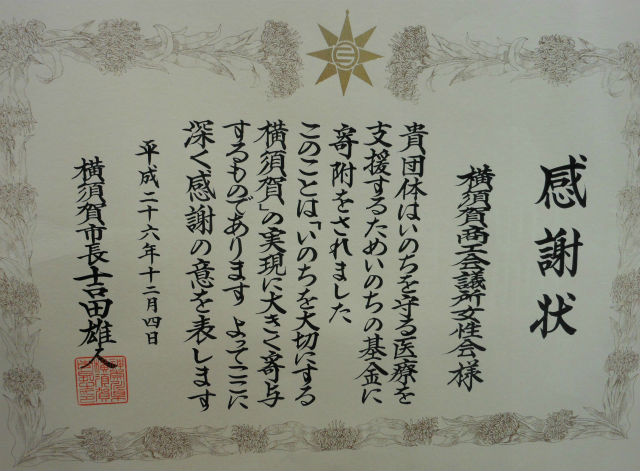 感謝状
横須賀商工会議所女性会様
貴団体はいのちを守る医療を
支援するためいのちの基金に
寄附をされました
このことは「いのちを大切にする
横須賀」の実現に大きく寄与
するものであります よってここに
深く感謝の意を表します
平成二十六年十二月四日
横須賀市長 吉田雄人